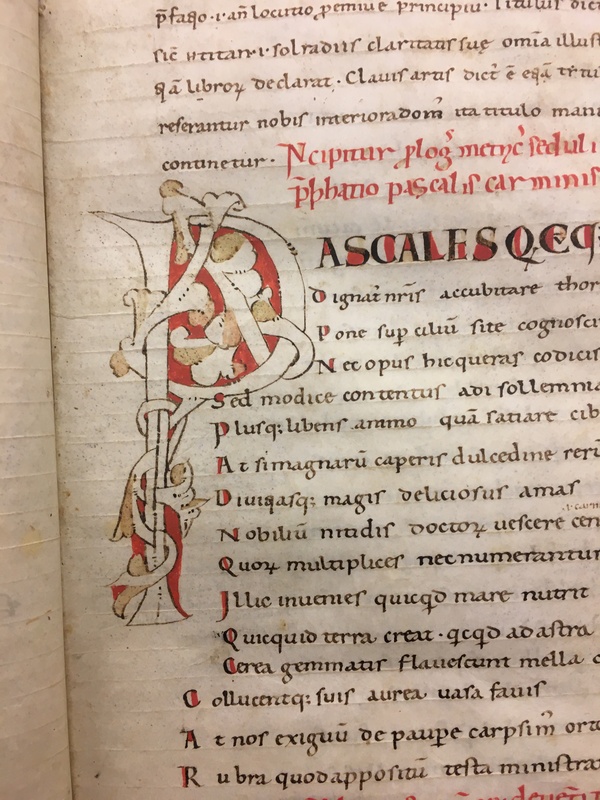 sic titan · sol radiis claritatis suę omia illust
declarat · Clavis artis
referantur nobis interiora dom ita titulo mani
continetur · Ncipitur metryc seduli
pascalis carminis
PASCALES QC
Dignat nris accubitare thor
Pone sup ciliū site cognosci
Nec opus hic queras codicis
Sed modice contentus adi sollemnia
Plusq; libens animo quā satiare cib
At si magnarū caperis dulcedine rerū
Divitiasq; magis deliciosus amas
Nobiliū nitidis doctoꝝ vescere cen
Quoꝝ multiplices nec numerantur
Illic invenies quicqd mare nutrit
Quicquid terra creat · qcqd ad astra
Cerea gemmatis flavescunt mella
Collucentq; suis aurea vasa favis
At nos exiguū de paupe carpsim
Rubra quod appositū testa ministrat